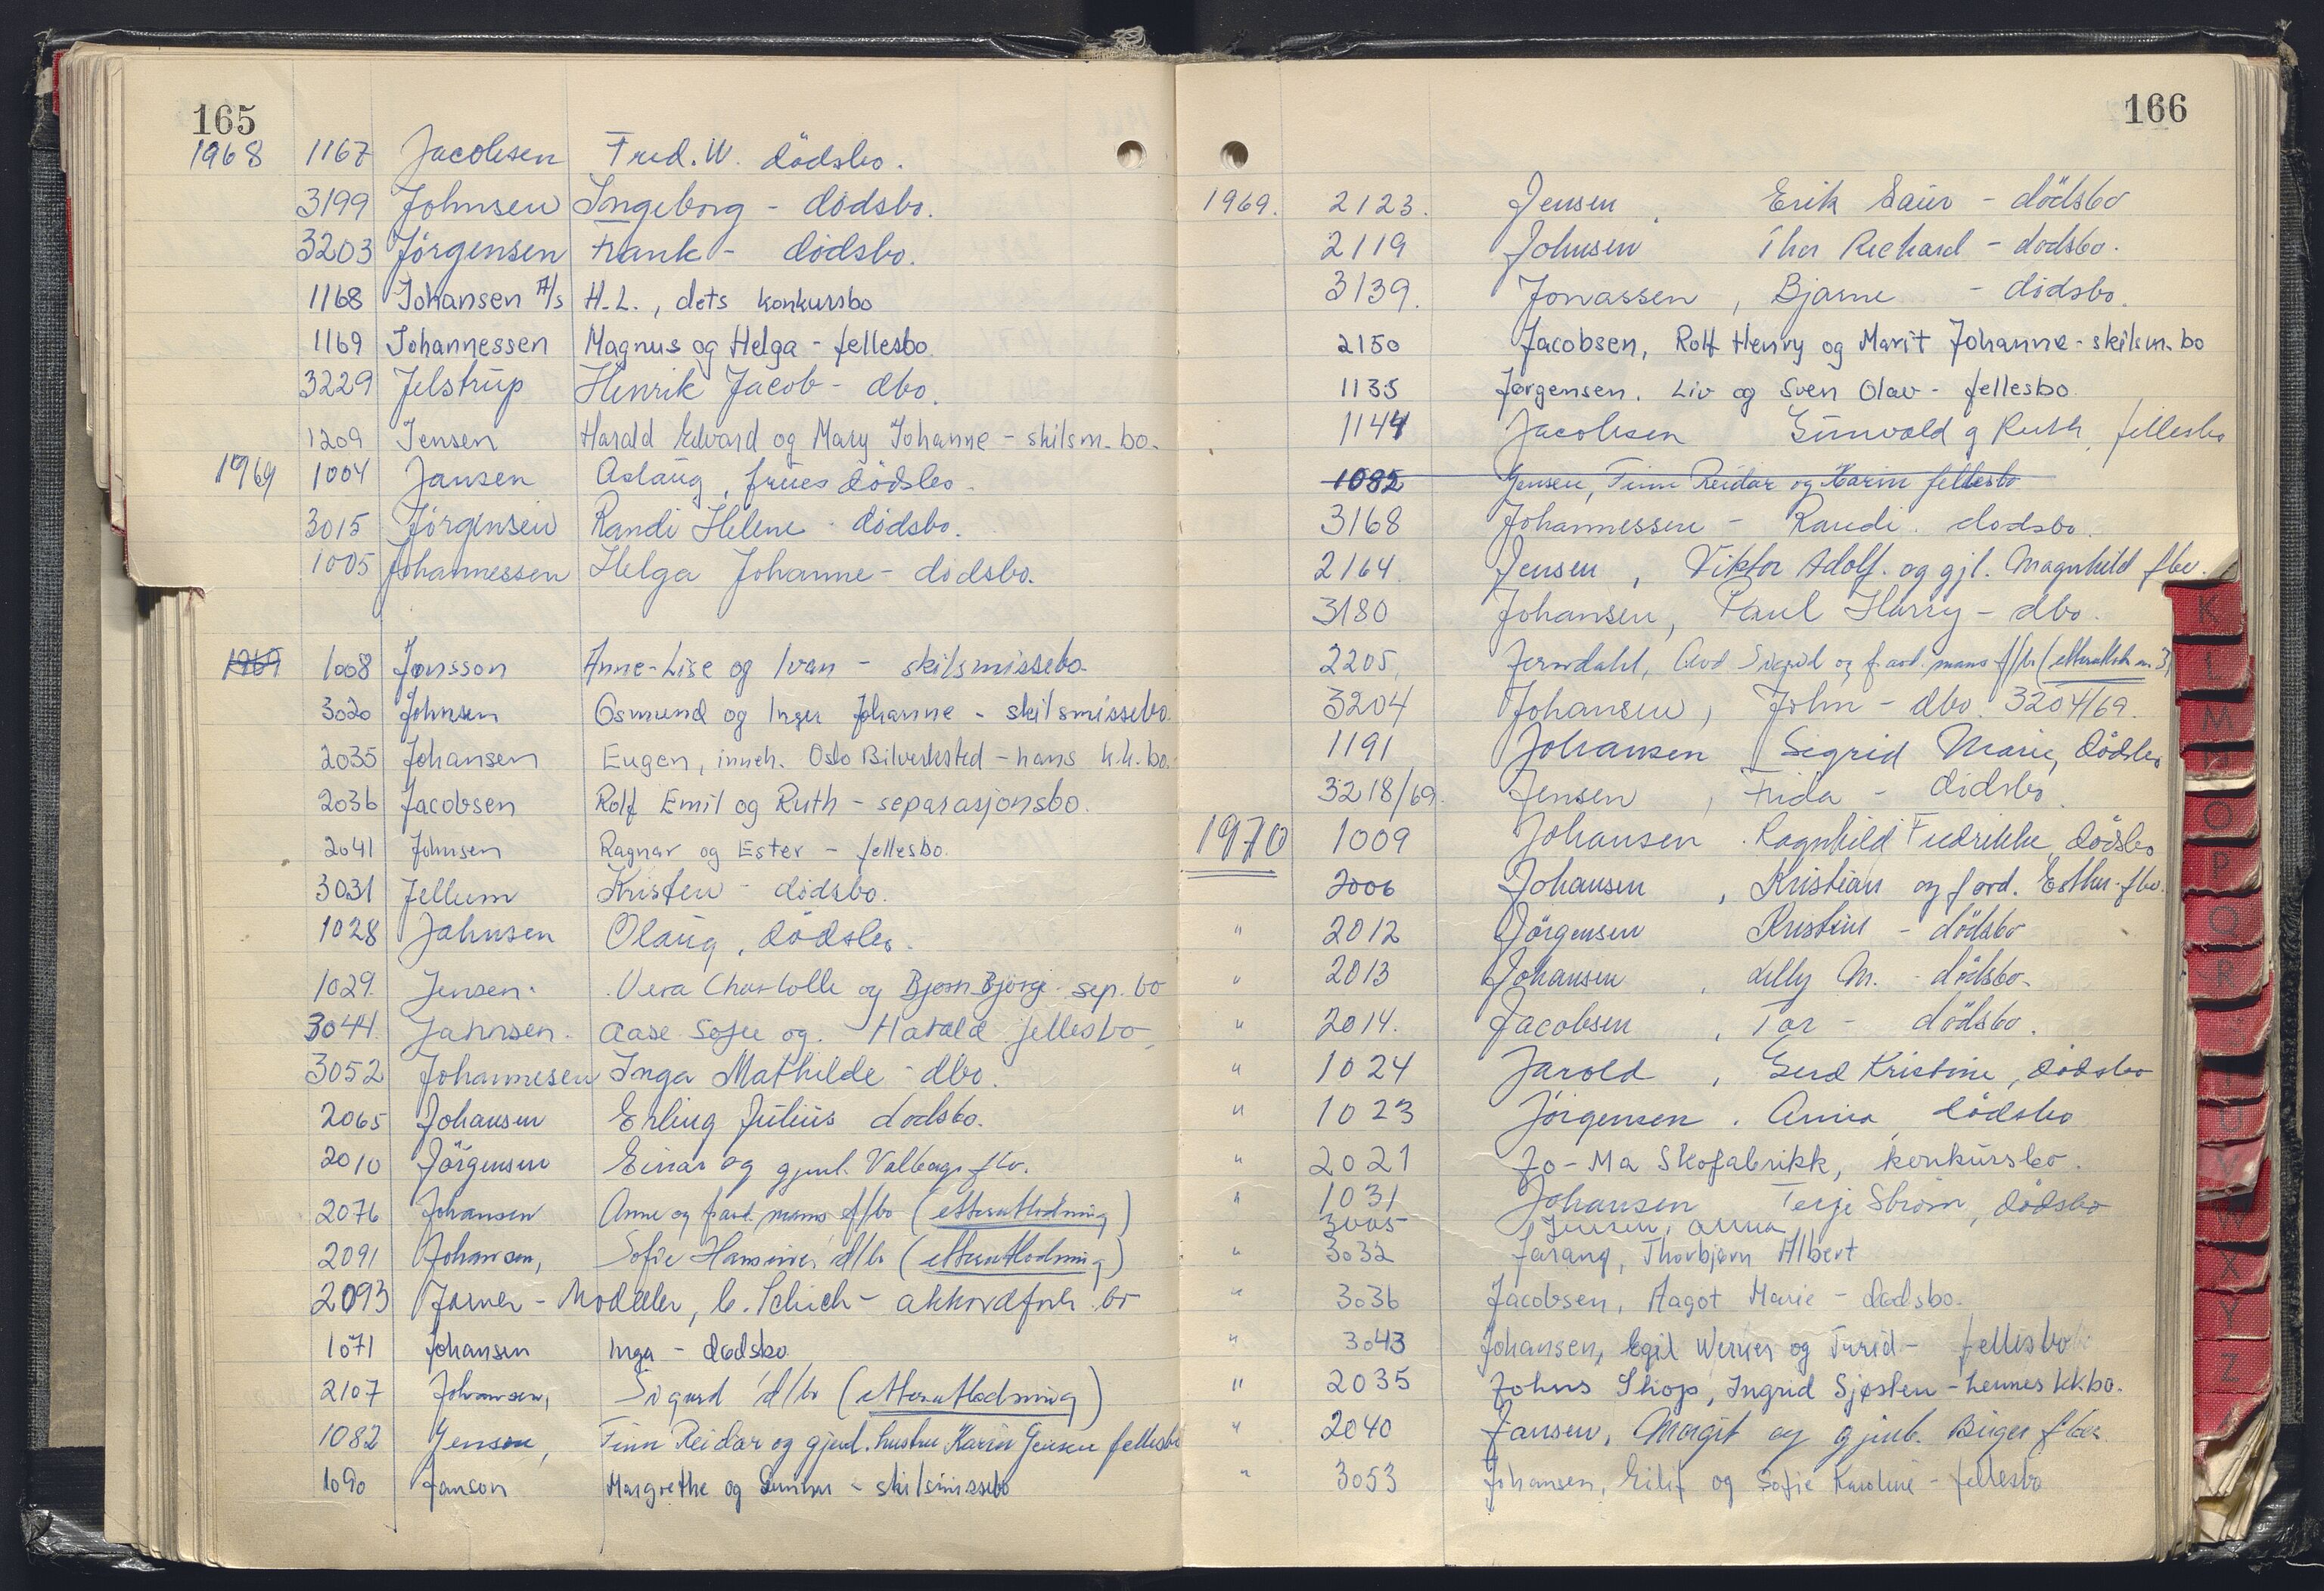 165
1968 1167 Jacobsen Fred. W. dödsbo.
3199 Johnsen Ingeborg - dödsbo.
3203 Jörgensen Frank - dödsbo.
1168 Johansen A/s H.L., dets konkursbo
1169 Johannessen Magnus og Helga - fellesbo.
3229 Jelstrup Henrik Jacob - dbo.
1209 Jensen Harald Edvard og Mary Johanne - skilsm. bo.
1969 1004 Jansen Aslaug, frues dödsbo.
3015 Jörgensen Randi Helene - dödsbo.
1005 Johannessen Helga Johanne - dödsbo.
1969 1008 Jonsson Anne-Lise og Ivan - skilsmissebo.
3020 Johnsen Osmund og Inger Johanne - skilsmissebo.
2035 Johansen Eugen, inneh. Oslo Bilverksted - hans k.k.bo.
2036 Jacobsen Rolf Emil og Ruth - separasjonsbo.
2041 Johnsen Ragnar og Ester - fellesbo.
3031 Jellum Kristen - dödsbo.
1028 Jahnsen Olaug, dödsbo.
1029. Jensen. Vera Charlotte og Bjørn Bjørge sep. bo
3044. Jahnsen. Aase Sofie og Harald fellesbo
3052 Johannesen Inga Mathilde - dbo.
2065 Johansen Erling Julius dødsbo.
2010 Jörgensen Einar og gjenl. Valborgs fbo.
2076 Johansen Anne og f. avd. manns f/bo (etterutlodning)
2091 Johansen, Sofie d/bo (etterutlodning)
2093 Jarner - Modeller, C. Schich - akkordforh. bo
1071 Johansen Inga - dødsbo
2107 Johansen, Sigurd d/bo (etterutlodning)
1082 Jensen, Finn Reidar og gjenl. hustru Karin Jensen fellesbo
1090 Janson Margrethe og Gunnar - skilsmissebo
166
1969. 2123. Jensen, Erik - dödsbo
2119 Johnsen Thor Richard - dødsbo.
3139. Jonassen, Bjarne - dödsbo.
2150 Jacobsen, Rolf Henry og Marit Johanne - skilsm. bo
1135 Jørgensen, Liv og Sven Olav - fellesbo.
1144 Jacobsen Gunvald og Ruth, fellesbo
1082 Jensen, Finn Reidar og Karin fellesbo
3168 Johannessen - Randi. dødsbo.
2164. Jensen, Viktor Adolf. og gjl. Magnhild fbo.
3180 Johansen, Paul Harry - dbo.
2205. Jerndahl, Sigrid og f. avd. manns f/bo
3204 Johansen, John - dbo. 3204/69.
1191 Johansen Sigrid Marie, dödsbo
3218/69. Jensen, Frida - dödsbo
1970 1009 Johansen. Ragnhild Fredrikke dödsbo
2006 Johansen, Kristian og f. avd. Esther fbo.
" 2012 Jörgensen Kristine - dödsbo
" 2013 Johansen, Lilly M. - dödsbo.
" 2014. Jacobsen, Tor - dödsbo.
" 1024 Jarold, Gerd Kristine, dödsbo
" 1023 Jörgensen. Anna, dödsbo
" 2021 Jo-Ma Skofabrikk, konkursbo.
" 1031 Johansen Terje Strøm, dödsbo
3005 Jensen, Anna
" 3032 Jarang, Thorbjørn Albert
" 3036 Jacobsen, Aagot Marie - dødsbo.
" 3043 Johansen, Egil Werner og Turid - fellesbo
" 2035 Johns Shop, Ingrid Sjøsten - hennes kk.bo.
" 2040 Jansen, Margit og gjenl. Birger fbo.
" 3053 Johansen, Eilif og Sofie Karoline - fellesbo
K
L
M
N
O
P
Q
V
W
X
Y
Z